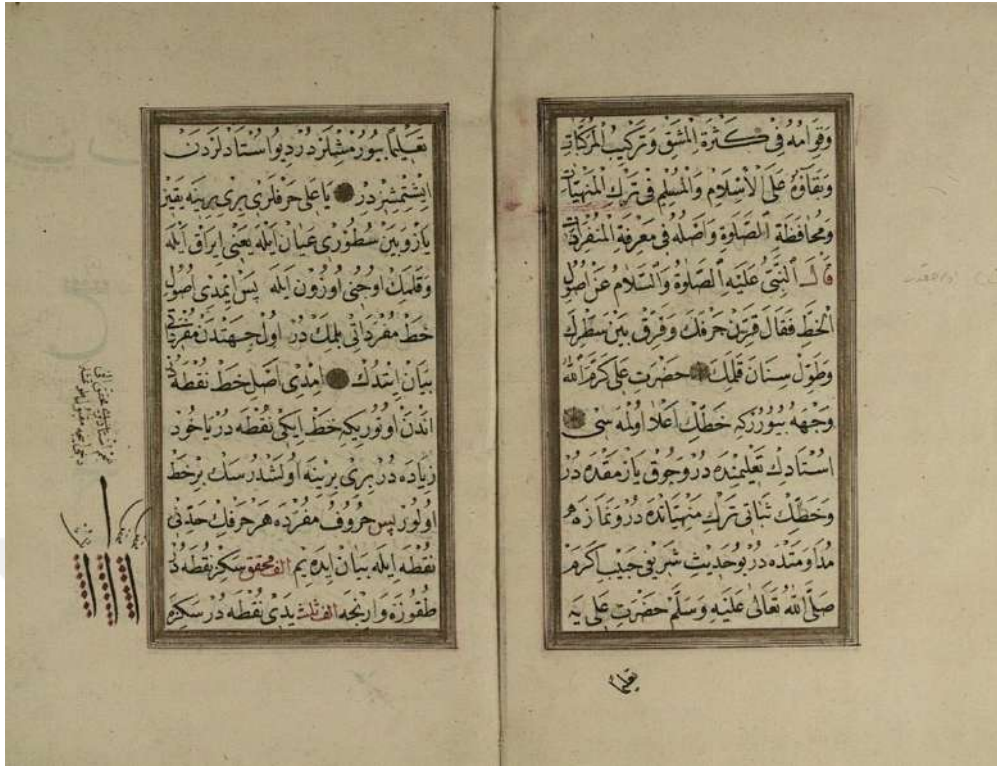 وَقِوَامُهُ فِى كَثْرَةِ الْمَشْقِ وَتَرْكِيبِ الْمُرَكَّبَاتِ
وَبَقَاؤُهُ عَلَى الْاِسْلَامِ وَالْمُسْلِمِ فِى تَرْكِ الْمَنْهِيَّاتِ
وَمُحَافَظَةِ الصَّلٰوةِ وَاَصْلُهُ فِى مَعْرِفَةِ الْمُفْرَدَاتِ
قَالَ النَّبِىُّ عَلَيْهِ الصَّلٰوةُ وَالسَّلَامُ عَنْ اُصُولِ
الْخَطِّ فَقَالَ قَرِّنْ حَرْفَكَ وَفَرِّقْ بَيْنَ سَطْرِكَ
وَطَوِّلْ سِنَانَ قَلَمِكَ حَضْرَتِ عَلِى كَرَّمَ اللّٰهُ
وَجْهَهُ بُيُورُرْكِه خَطِّكْ اَعْلَا اُولْمَه سِى
اُسْتَادِكْ تَعْلِيمِنْدَه دُرْ وَچُوقْ يَازْمَقْدَه دُرْ
وَخَطِّكْ ثَبَاتِى تَرْكِ مَنْهِيَّاتْدَه دُرْ وَنَمَازَه
مُدَاوَمَتْدَه دُرْ بُو حَدِيثِ شَرِيفِى حَبِيبِ اَكْرَمْ
صَلَّى اللّٰهُ تَعَالٰى عَلَيْهِ وَسَلَّمْ حَضْرَتِ عَلِى يَه
تعليما
تَعْلِيمًا بُيُورْمُشْلَرْدُرْ دِيُو اُسْتَادْلَرْدَنْ
اِيشِتْمِشِزْدُرْ يَا عَلِى حَرْفْلَرِى بِرِى بِرِينَه يَقِينْ
يَازْ وَبَيْنَ سُطُورِى عَيَانْ اَيْلَه يَعْنِى اِيرَاقْ اَيْلَه
وَقَلَمِكْ اُوجُنِى اُوزُونْ اَيْلَه پَسْ اِيمْدِى اُصُولِ
خَطْ مُفْرَدَاتِى بِلْمَكْدُرْ اُولْ جِهَتْدَنْ مُفْرَدَاتِى
بَيَانْ اِيتْدِكْ اِمْدِى اَصْلِ خَطْ نُقْطَه دُرْ
اَنْدَنْ اُوتُورِيكِه خَطْ اِيكِى نُقْطَه دُرْ يَاخُودْ
زِيَادَه دُرْ بِرِى بِرِينَه اُولَشْدُرْسَكْ بِرْ خَطْ
اُولُورْ پَسْ حُرُوفِ مُفْرَدَه هَرْ حَرْفِكْ حَدِّنِى
نُقْطَه اِيلَه بَيَانْ اِيدَه يِمْ الف محقق سَكِزْ نُقْطَه دُرْ
طُقُوزَه وَارِنْجَه الف ثلث يَدِى نُقْطَه دُرْ سَكِزَه